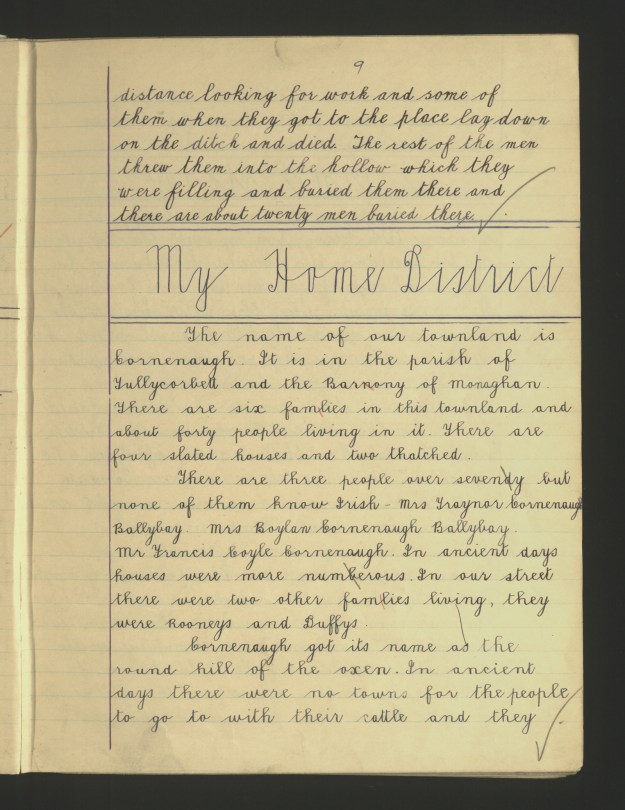 9
distance looking for work and some of
them when they got to the place lay down
on the ditch and died. The rest of the men
threw them into the hollow which they
were filling and buried them there and
there are about twenty men buried there.
My Home District
The name of our townland is
Cornenaugh. It is in the parish of
Tullycorbett and the Barnony of Monaghan.
There are six famlies in this townland and
about forty people living in it. There are
four slated houses and two thatched.
There are three people over sevendy but
none of them know Irish - Mrs Traynor Cornenaugh
Ballybay. Mrs Boylan Cornenaugh Ballybay.
Mr Francis Coyle Cornenaugh. In ancient days
houses were more numberous. In our street
there were two other famlies living, they
were Rooneys and Duffys.
Cornenaugh got its name as the
round hill of the oxen. In ancient
days there were no towns for the people
to go to with their cattle and they